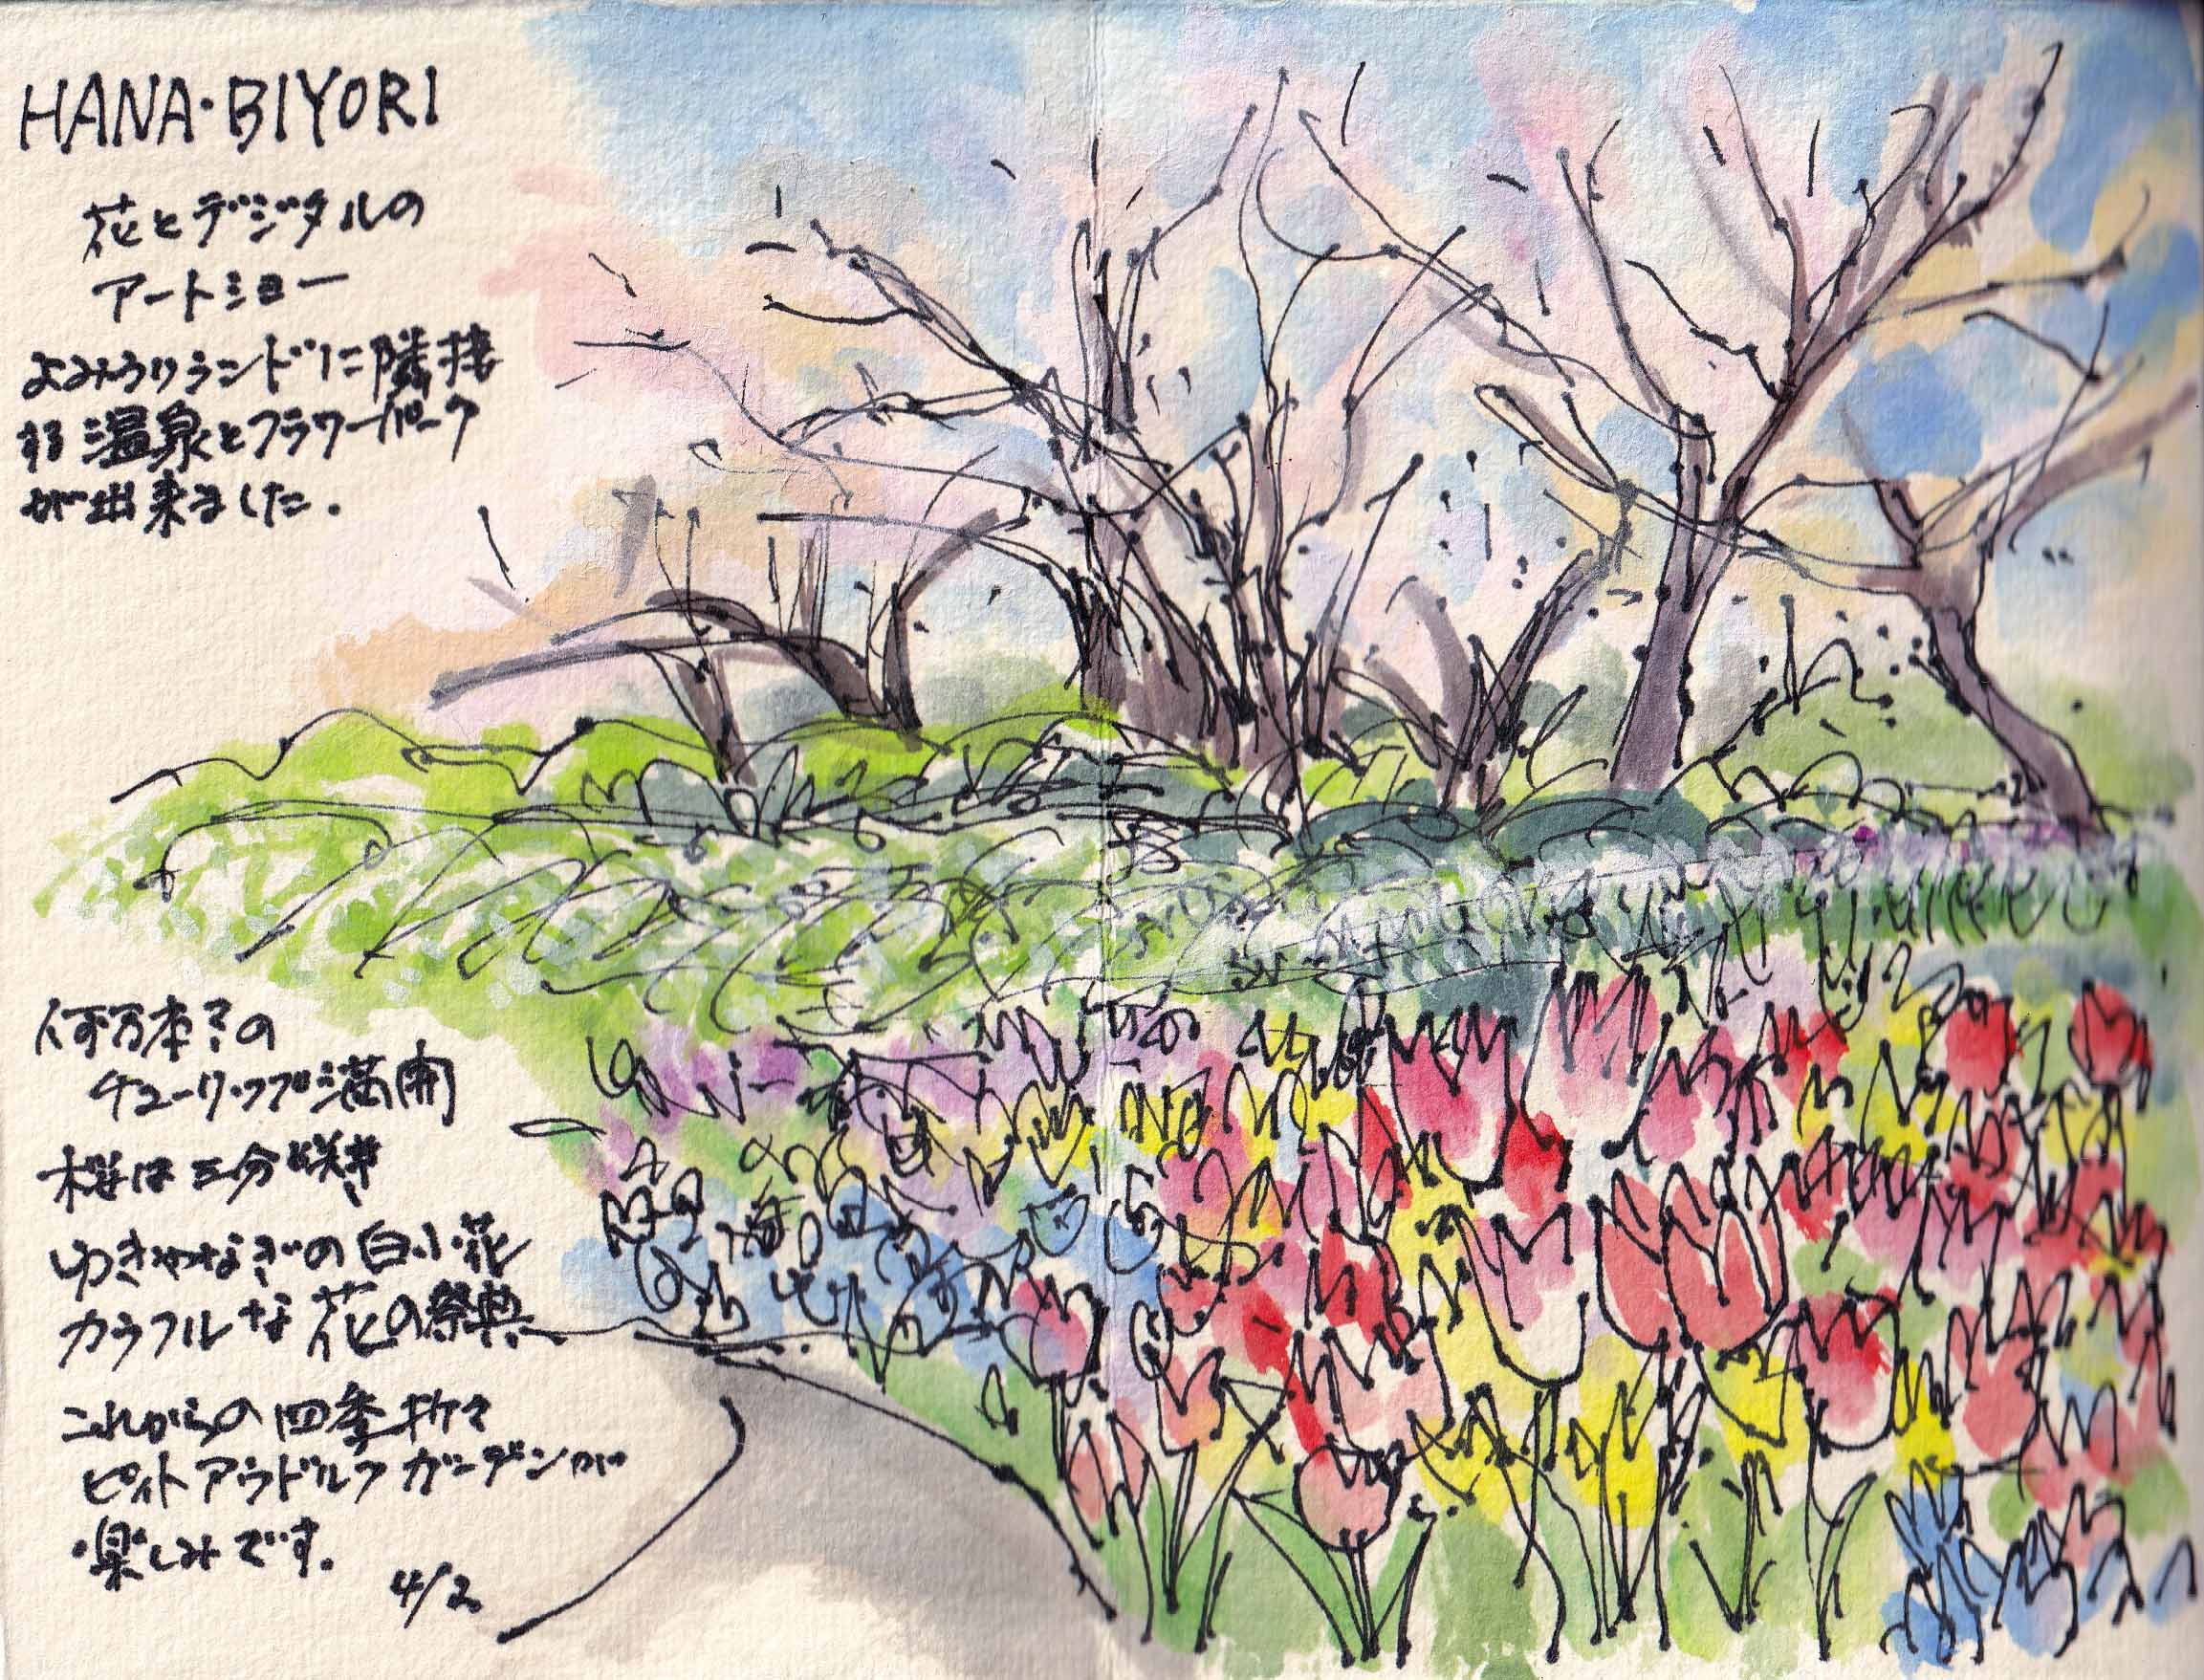 HANA・BIYORI
花とデジタルの
アートショー
よみうりランドに隣接
する温泉とフラワーパーク
が出来ました.
何万本?の
チューリップ満開
桜は三分咲き
ゆきやなぎの白い小花
カラフルな花の祭典
これからの四季折々
ピィトアウドルフガーデンが
楽しみです.
4/2